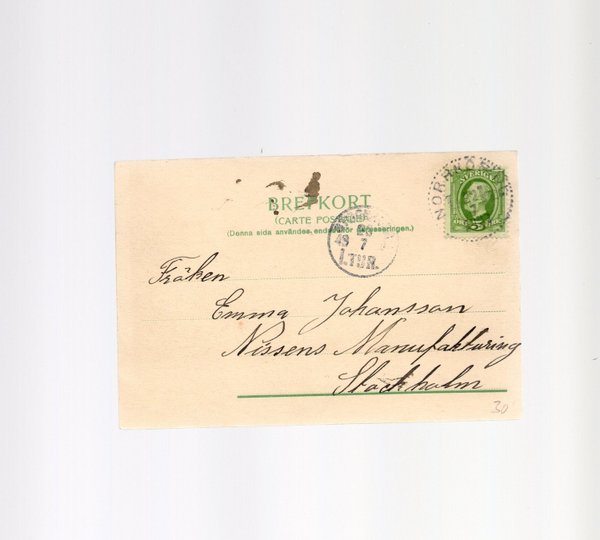 BREFKORT
(CARTE POSTALE)
(Denna sida användes endast för adresseringen.)
NORRKÖPING
SVERIGE
ÖRE 5 ÖRE
7
1.TUR.
Fröken
Emma Johansson
Nissens Manufakturing
Stockholm
30